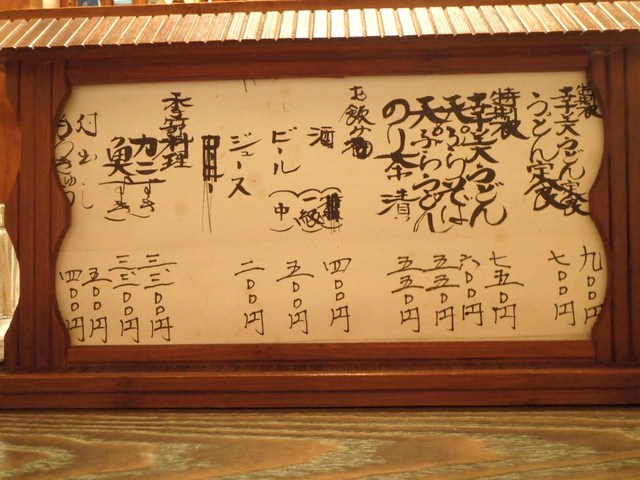 特製
幸天うどん定食 九〇〇円
うどん定食 七〇〇円
特製
幸天うどん 七五〇円
天ぷらそば 六〇〇円
天ぷらうどん 五五〇円
のり茶漬 五五〇円
お飲み物
酒 二級 四〇〇円
ビール(中) 五〇〇円
ジュース 二〇〇円
季節料理
カニすき 三、三〇〇円
魚すき 三、〇〇〇円
五〇〇円
四〇〇円